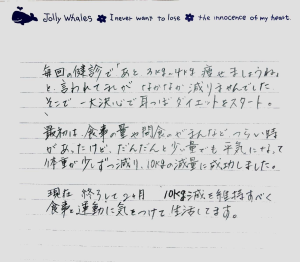 Jolly Whales ✽ I never want to lose ✽ the innocence of my heart.
毎回の健診で「あと3kg〜4kg痩せましょうね」
と言われてましたが なかなか減りませんでした
そこで 一大決心で耳つぼダイエットをスタート。
最初は、食事の量や間食のがまんなど つらい時
があったけど、だんだんと少量でも平気になって
体重が少しずつ減り、10kgの減量に成功しました。
現在 終了して2ヶ月 10kg減を維持すべく
食事と運動に気をつけて生活してます。